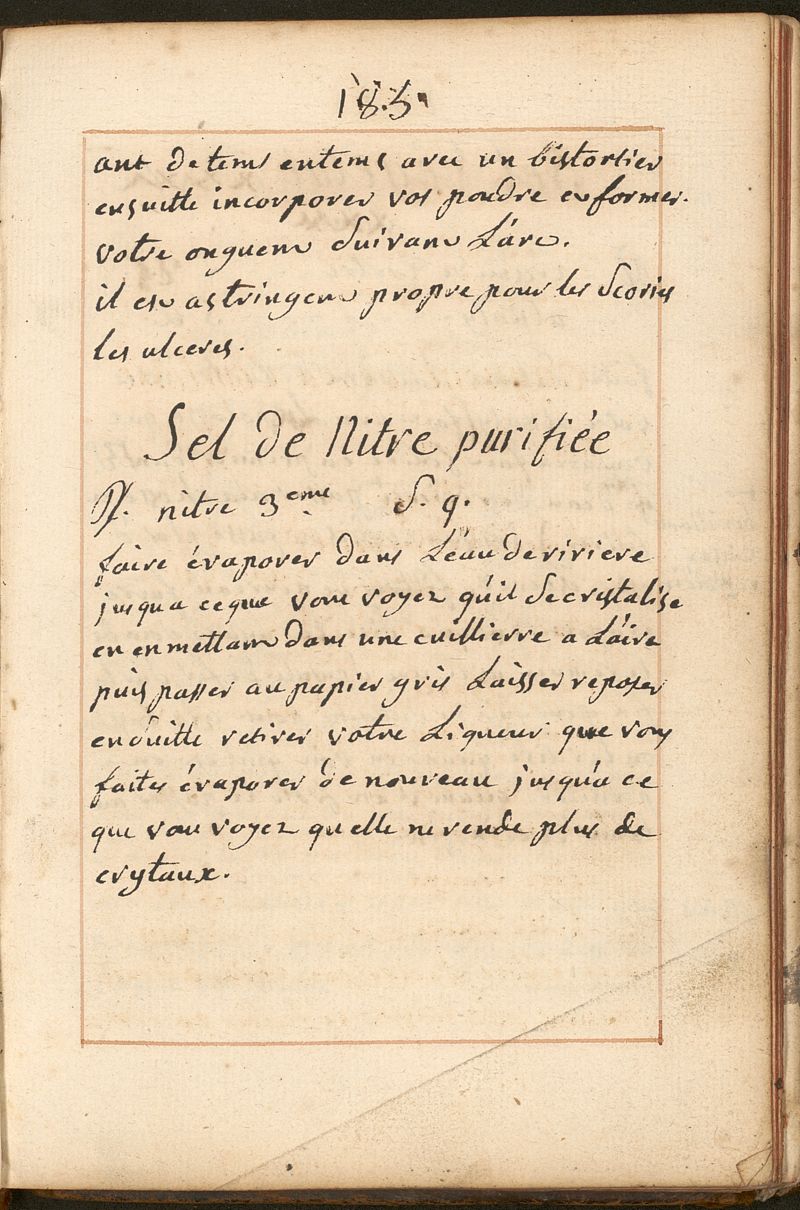 185.
ant de tems entems avec un bistortier
ensuitte incorporer vos poudre et former.
votre onguent Suivant L'art.
il est astringent propre pour les Scories
les ulceres.
Sel de Nitre purifiée
nitre 3eme S. q.
faire évaporer dans L'eau de riviere
jusqua ceque vous voyez qu'il Secristalise
en en mettant dans une cuillierre a L'aire
puis passer au papier gris Laisser reposer
enSuitte retirer votre Liqueur que vous
faites évaporer de nouveau jusqu'a ce
que vous voyez quelle ne rende plus de
crytaux.